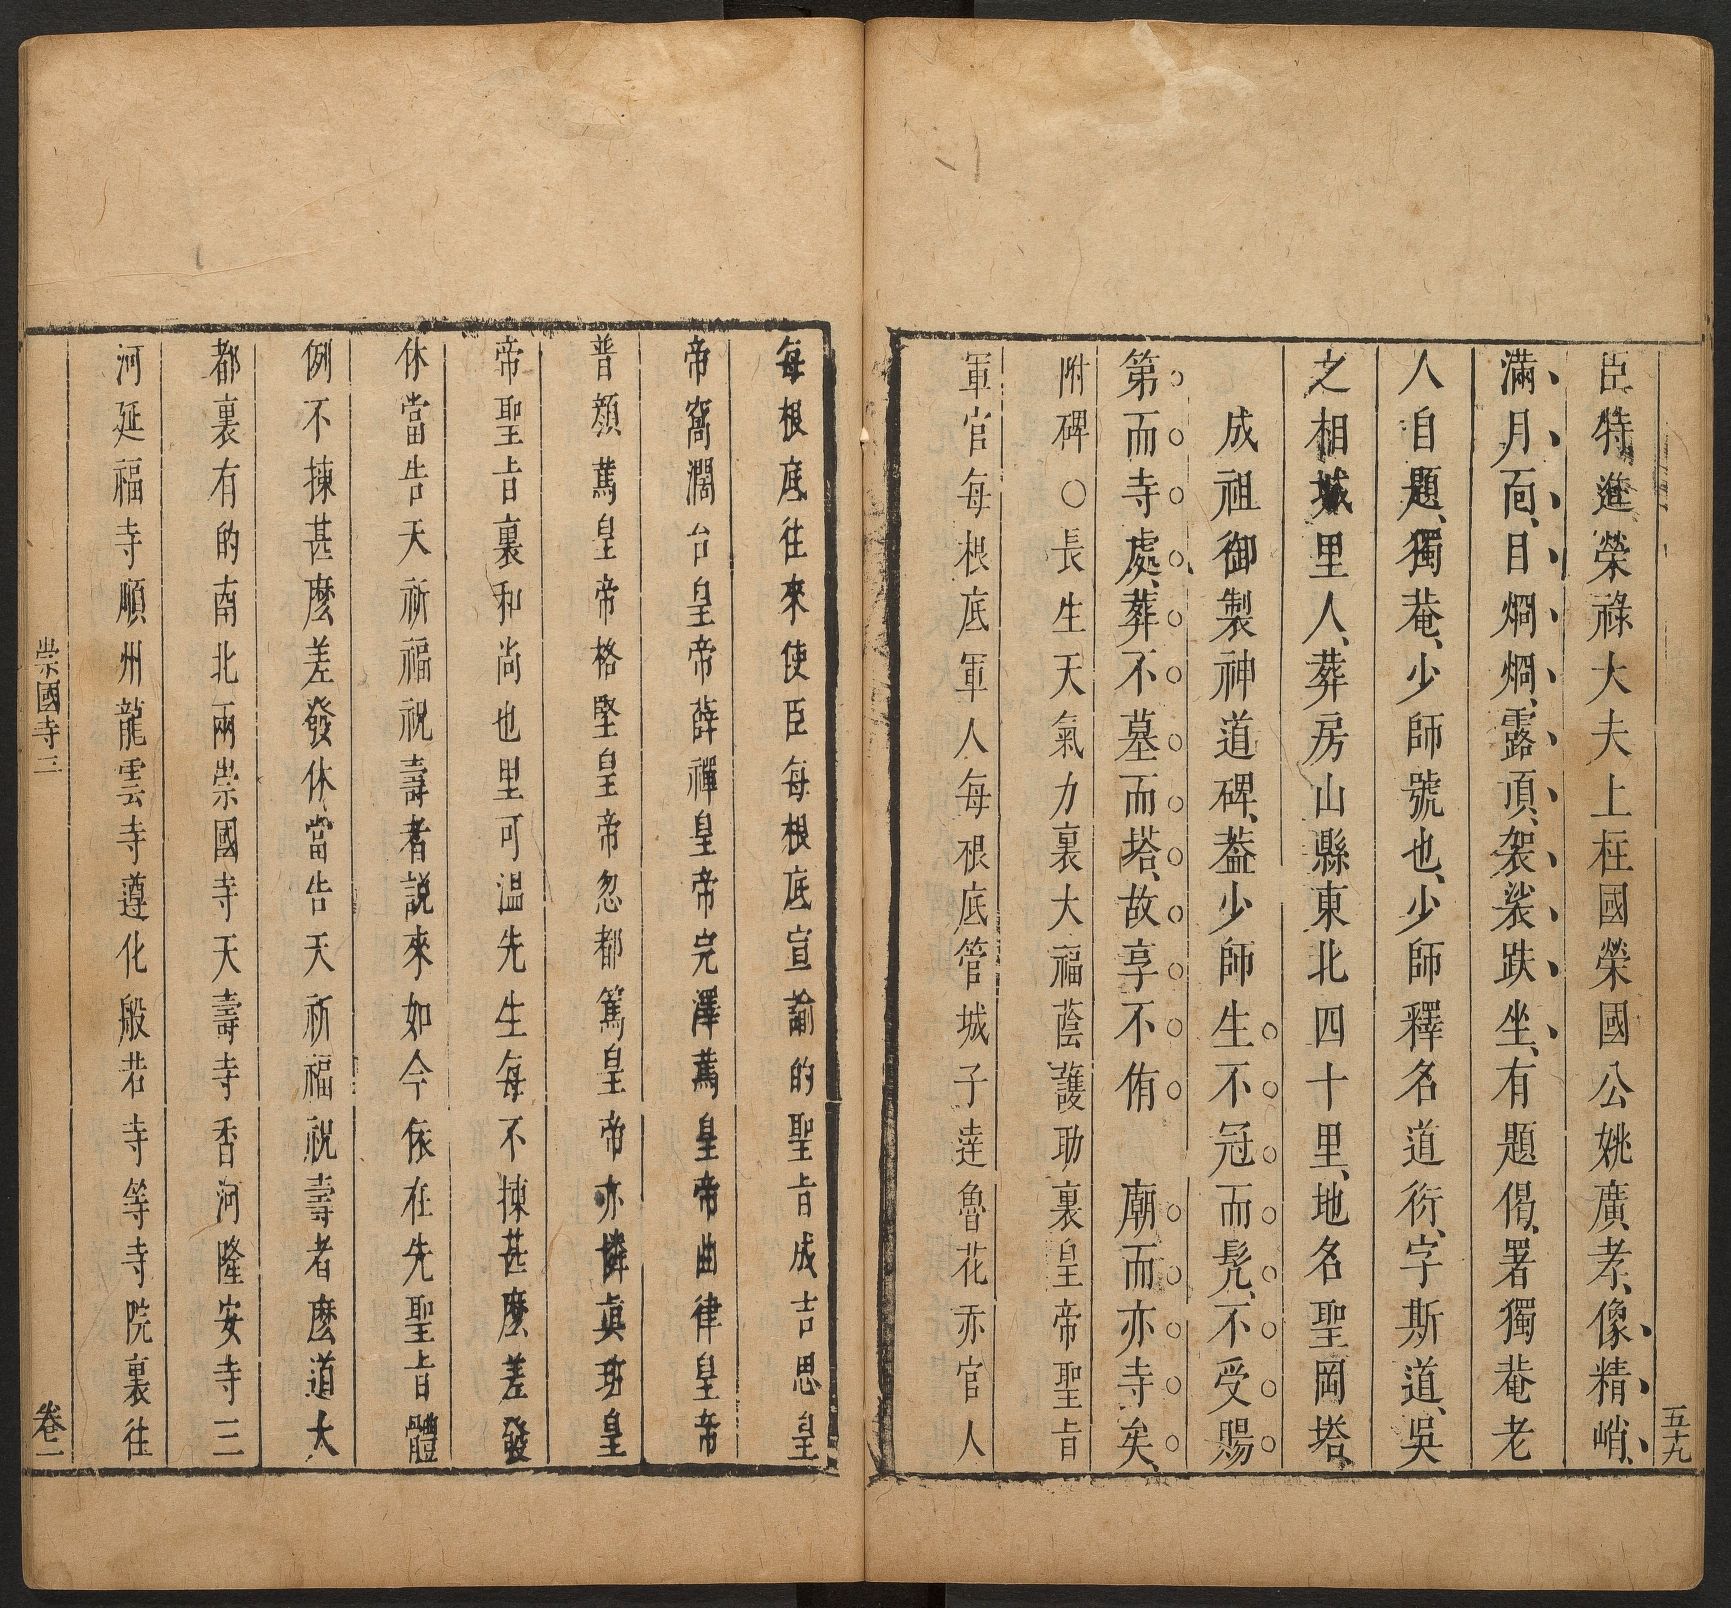 五十九
臣特進榮祿大夫上柱國榮國公姚廣孝、像精峭、
滿月面、目烱烱、露頂、袈裟趺坐、有題偈、署獨菴老
人自題、獨菴、少師號也、少師釋名道衍、字斯道、吳
之相城里人、葬房山縣東北四十里、地名聖岡塔、
成祖御製神道碑、葢少師生不冠而髠、不受賜
第而寺處、葬不墓而塔、故享不侑 廟而亦寺矣、
附碑○長生天氣力裏大福蔭護助裏皇帝聖旨
軍官每根底軍人每根底管城子達魯花赤官人
每根底往來使臣每根底宣諭的聖旨成吉思皇
帝窩濶台皇帝薛禪皇帝完澤篤皇帝曲律皇帝
普顏篤皇帝格堅皇帝忽都篤皇帝亦憐眞班皇
帝聖旨裏和尚也里可溫先生每不揀甚麽差發
休當告天祈福祝壽者說來如今依在先聖旨體
例不揀甚麽差發休當告天祈福祝壽者麽道大
都裏有的南北兩崇國寺天壽寺香河隆安寺三
河延福寺順州龍雲寺遵化般若寺等寺院裏往
崇國寺三
卷一